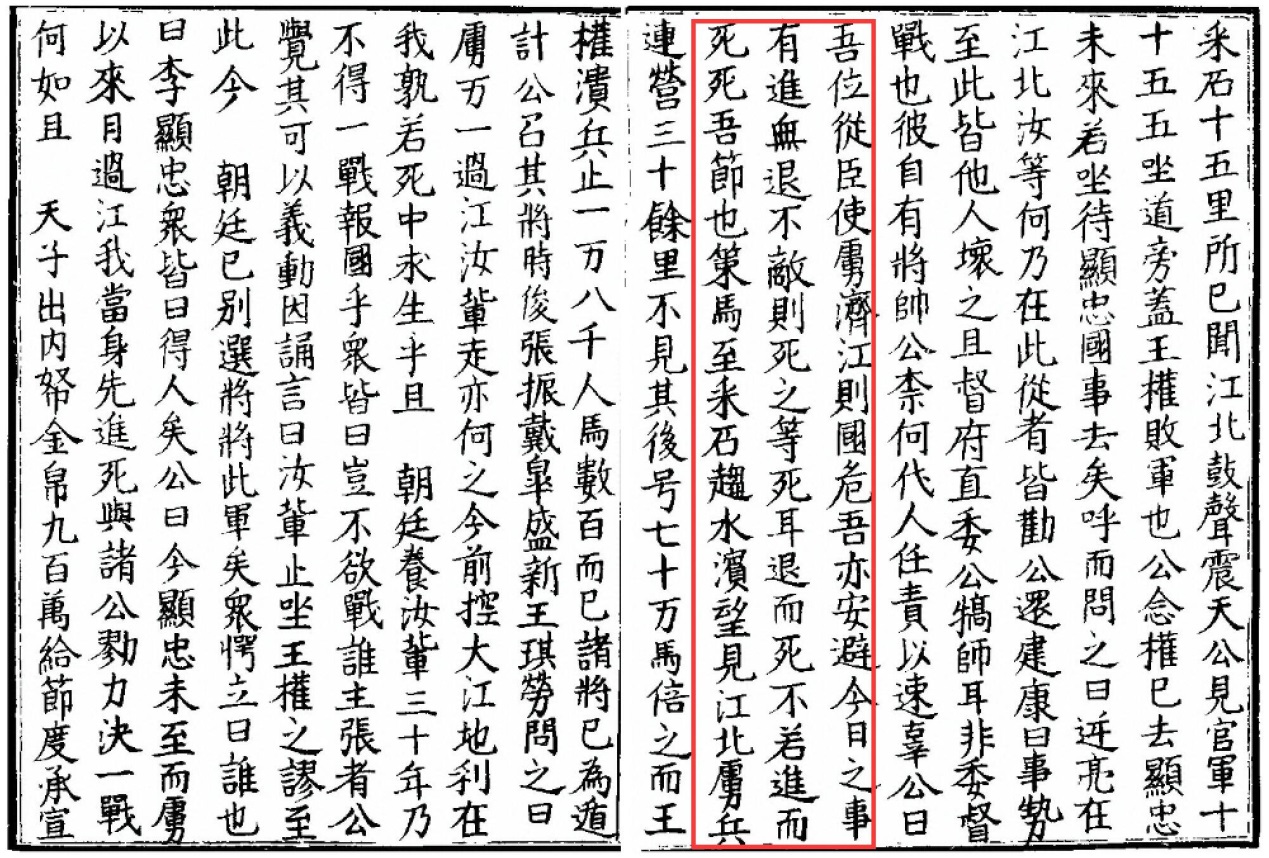 采石十五里所已聞江北鼓聲震天公見官軍十
十五五坐道旁蓋王權敗軍也公念權已去顯忠
未來若坐待顯忠國事去矣呼而問之曰逆亮在
江北汝等何乃在此從者皆勸公還建康曰事勢
至此皆他人壞之且督府直委公犒師耳非委督
戰也彼自有將帥公柰何代人任責以速辜公曰
吾位從臣使虜濟江則國危吾亦安避今日之事
有進無退不敵則死之等死耳退而死不若進而
死死吾節也策馬至采石趨水濱望見江北虜兵
連營三十餘里不見其後号七十万馬倍之而王
權潰兵止一万八千人馬數百而已諸將已為遁
計公召其將時俊張振戴臯盛新王琪勞問之曰
虜万一過江汝輩走亦何之今前控大江地利在
我孰若死中求生乎且　朝廷養汝輩三十年乃
不得一戰報國乎衆皆曰豈不欲戰誰主張者公
覺其可以義動因誦言曰汝輩止坐王權之謬至
此今　朝廷已别選將將此軍矣衆愕立曰誰也
曰李顯忠衆皆曰得人矣公曰今顯忠未至而虜
以來月過江我當身先進死與諸公勠力決一戰
何如且　天子出内帑金帛九百萬給節度承宣